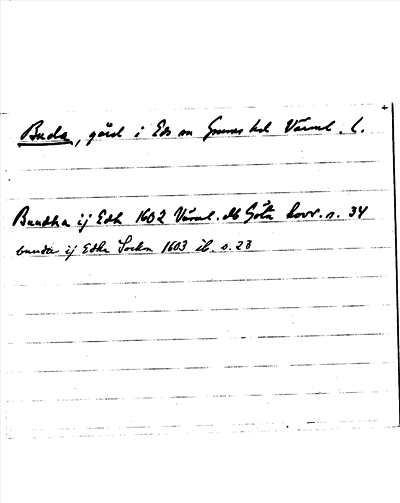 Buda, gård i Eds sn Grums hd Värml. l.
Buudha ij Edh 1602 Värml. db Göta hovr. s. 34
buuda ij Edha Sockn 1603 ib. s. 23